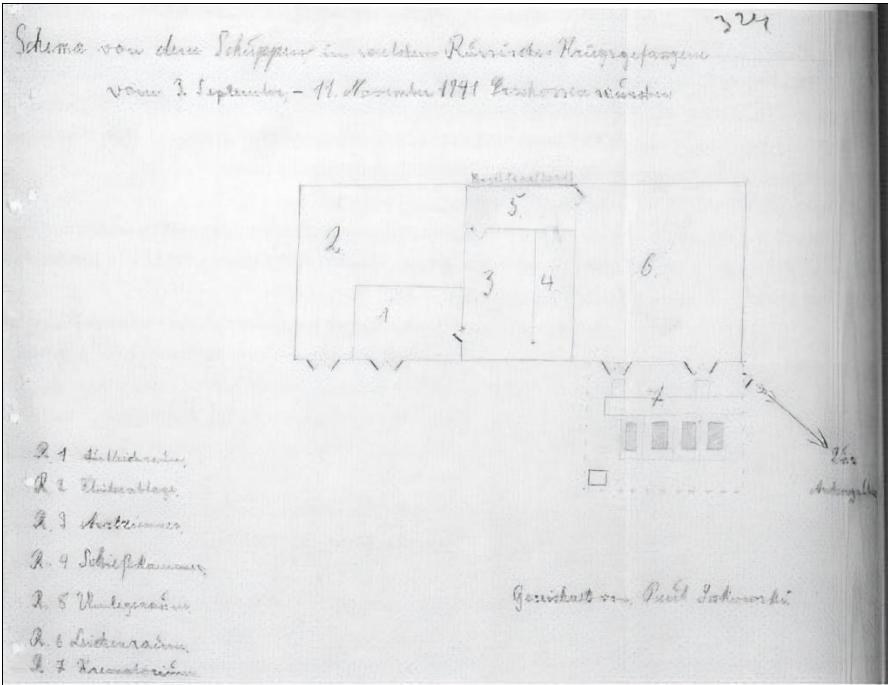 324
Schema von dem Schuppen in welchem Russische Kriegsgefangene
vom 3. September, - 11. November 1941 Erschossen wurden
5.
2
3
4
6.
1
7
R. 1
R. 2 Kleiderablage,
R. 3 Arztzimmer,
R. 4 Schießkammer,
R. 5
R. 6 Leichenraum,
R. 7 Krematorium
Gezeichnet von, Paul